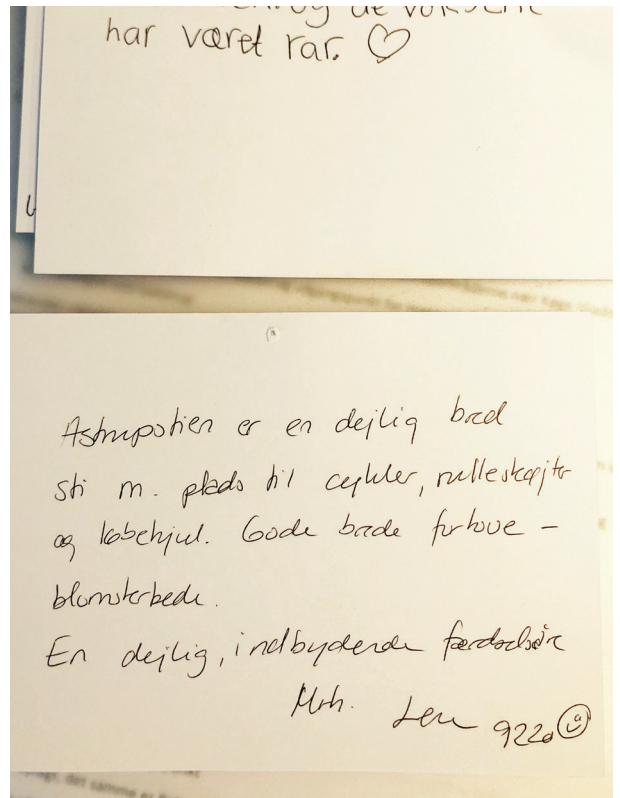 de voksne
har været rar. ♡
Astrupstien er en dejlig bred
sti m. plads til cykler, rulleskøjter
og løbehjul. Gode brede fortove -
blomsterbede.
En dejlig, indbydende færdselsåre
Mvh. Lene 9220 ☺